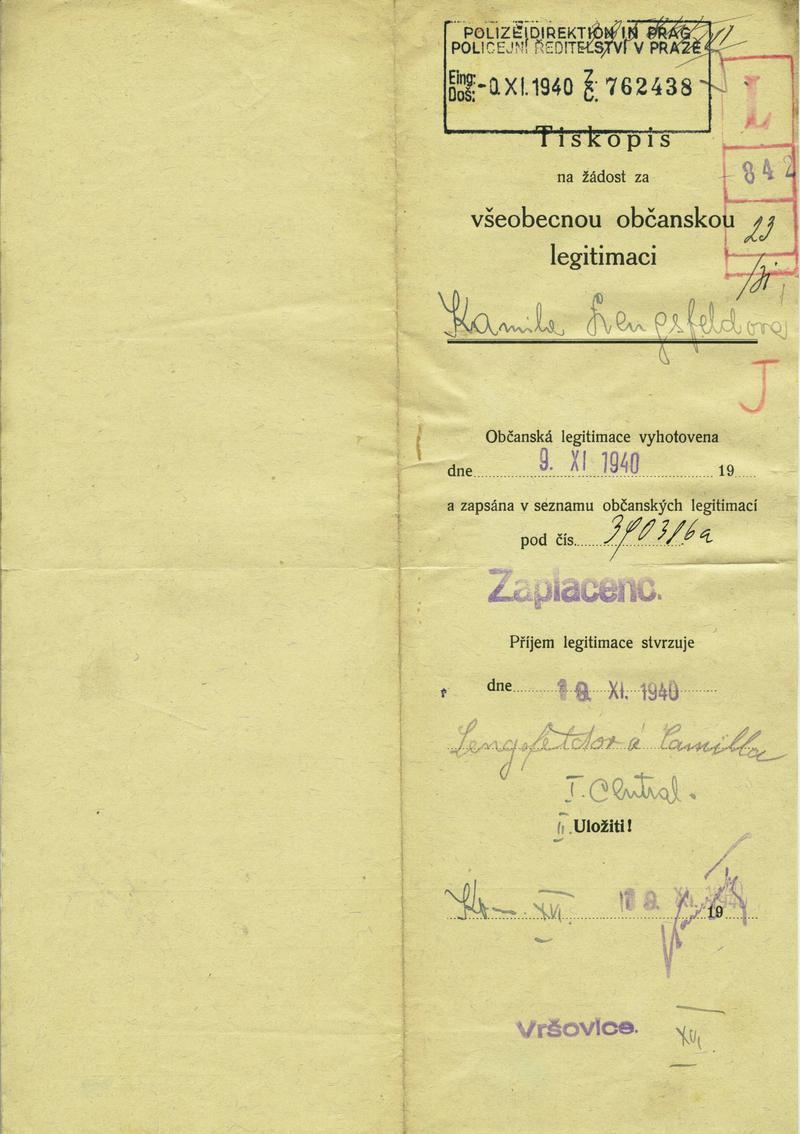 POLIZEIDIREKTION IN PRAG
POLICEJNÍ ŘEDITELSTVÍ V PRAZE
Eing: Doš: -9.XI.1940 Z. Č. 762438
L
Tiskopis
842
na žádost za
všeobecnou občanskou
23
legitimaci
/XI
Kamila Lengsfeldova
J
Občanská legitimace vyhotovena
dne 9. XI 1940 19
a zapsána v seznamu občanských legitimací
pod čís.
Zaplaceno.
Příjem legitimace stvrzuje
dne 19. XI. 1940
Lengsfeldorá Camilla
I. Central.
II. Uložiti!
XVI. 19. XI. 1940 19
Vršovice.
XVI.